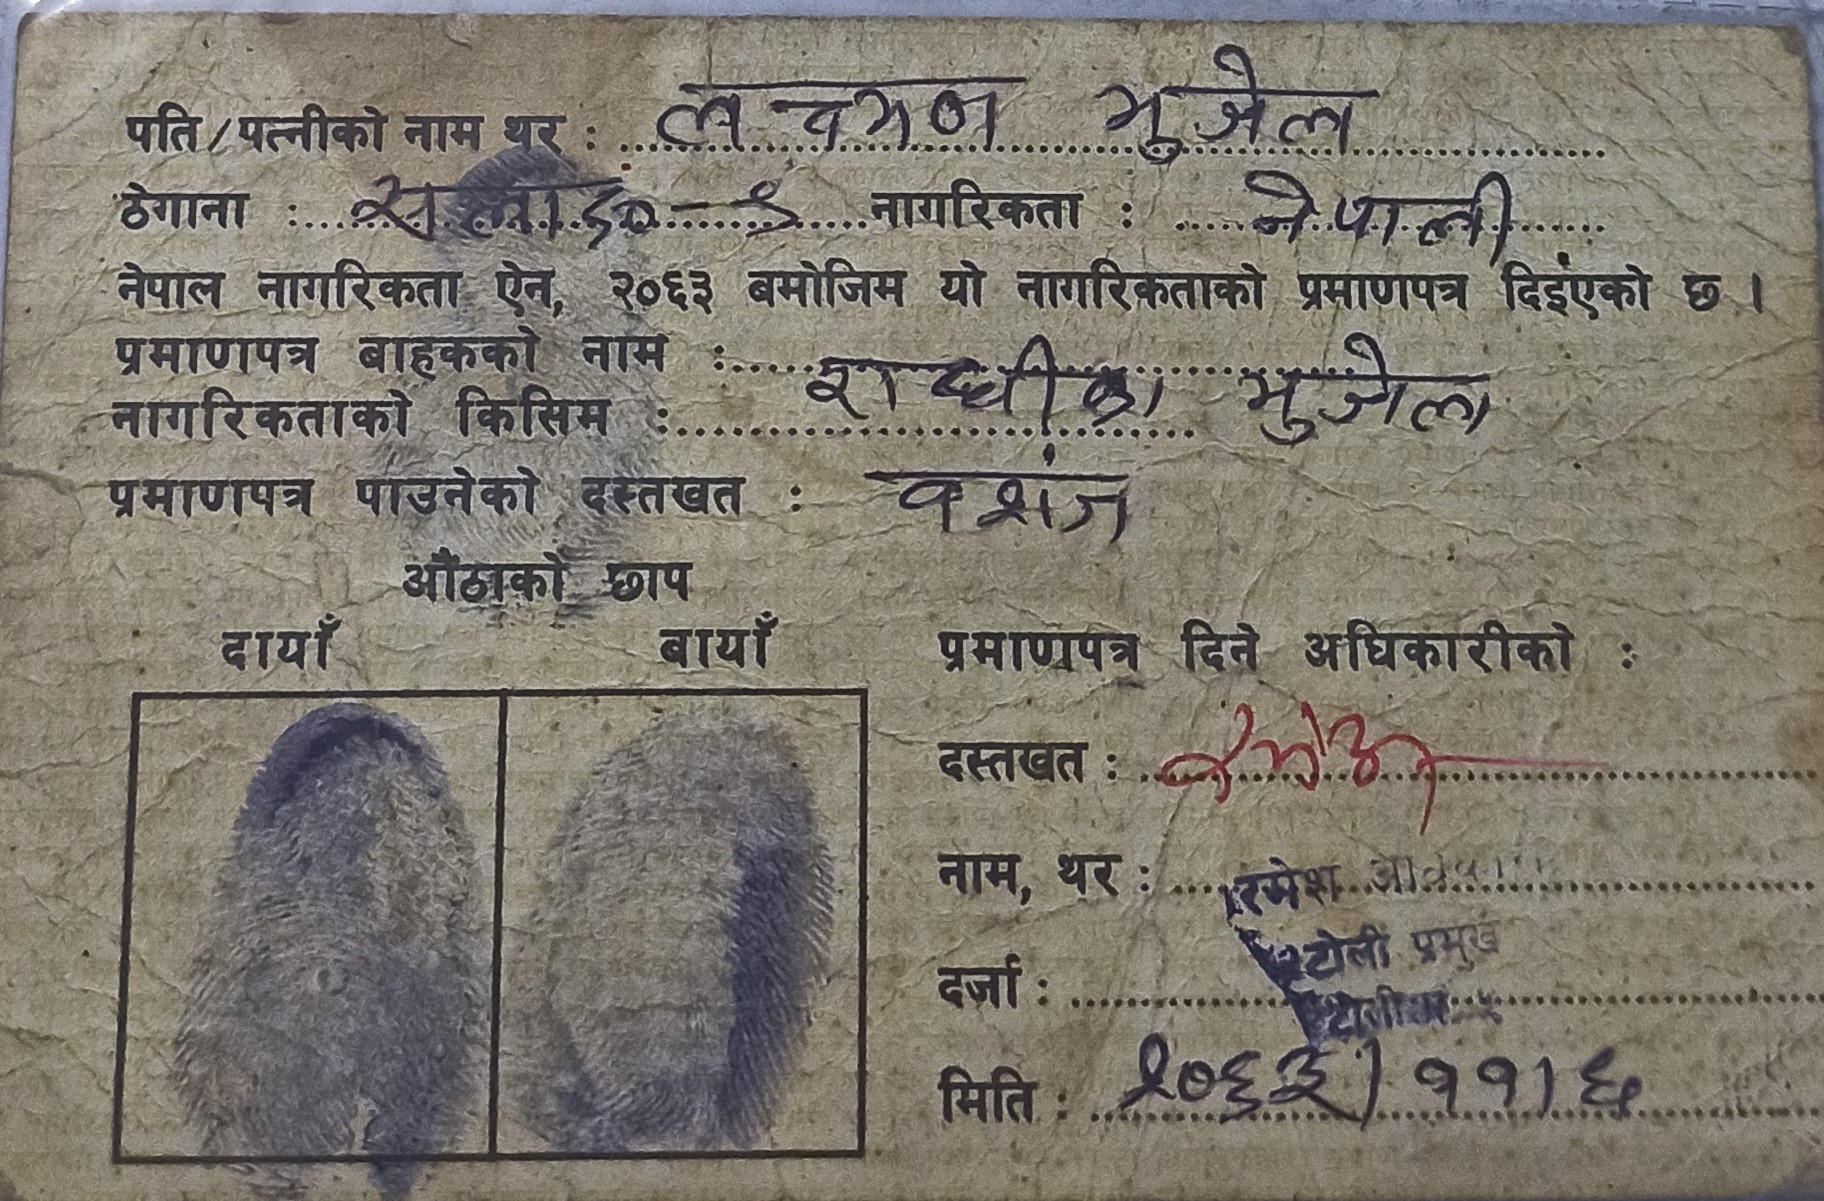 पति/पत्नीको नाम थर : लक्ष्मण भुजेल
ठेगाना : नागरिकता : नेपाली
नेपाल नागरिकता ऐन, २०६३ बमोजिम यो नागरिकताको प्रमाणपत्र दिइएको छ ।
प्रमाणपत्र बाहकको नाम : भुजेल
नागरिकताको किसिम :
प्रमाणपत्र पाउनेको दस्तखत : वशंज
औंठाको छाप
दायाँ बायाँ
प्रमाणपत्र दिने अधिकारीको :
दस्तखत :
नाम, थर : रमेश
टोली प्रमुख
दर्जा :
मिति : २०६३।११।६